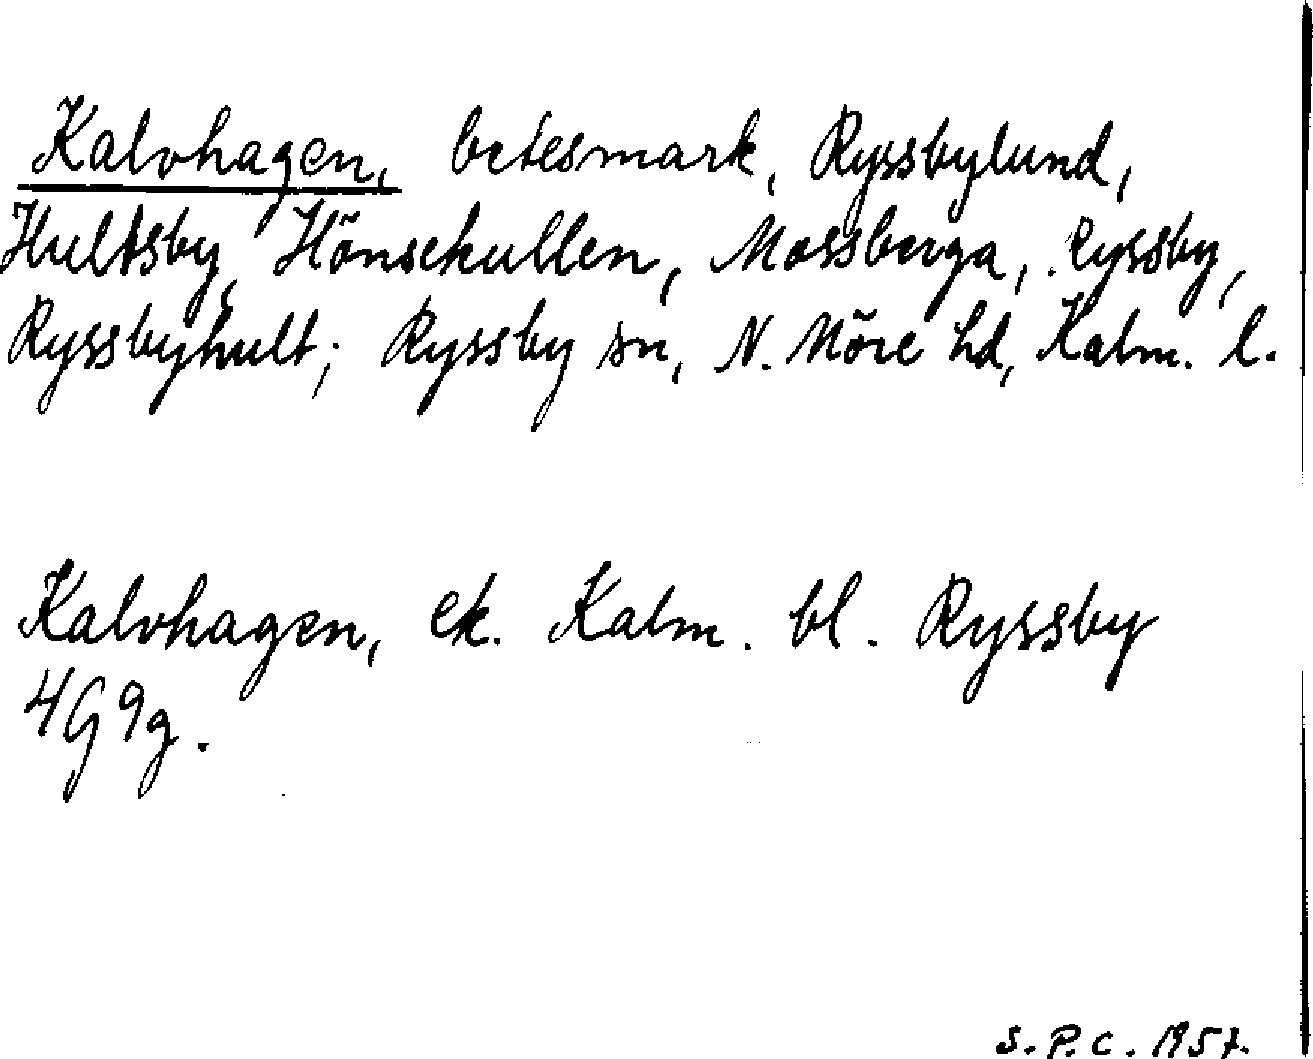 Kalvhagen, betesmark, Ryssbylund,
Hultsby, Hönsekullen, Mossberga, Ryssby,
Ryssbyhult; Ryssby sn, N. Möre hd, Kalm. l.
Kalvhagen, ek. Kalm. bl. Ryssby
4G 9g.
S.P.C. 1957.